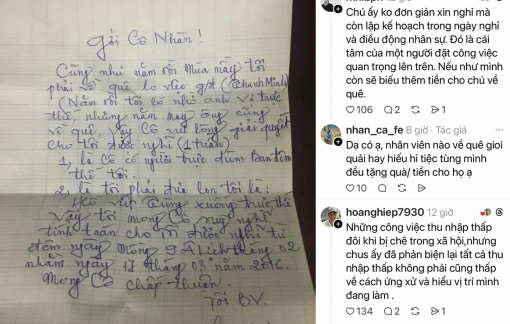 Gởi Cô Nhàn!
Cũng như năm rồi Mùa này tôi
phải về quê lo việc g/đ (Thanh Minh)
(Năm rồi tôi có nhờ anh Vi trực
thế, nhưng năm nay ông cũng
về quê, vậy Cô vui lòng giải quyết
cho tôi được nghỉ (1 tuần)
1, là Cô có người trực dùm Ban đêm
thế tôi.
2, là tôi phải đưa con tôi là:
xuống trực thế
Vậy tôi mong Cô suy nghĩ
tính toán cho tôi được nghỉ từ
đêm ngày Mồng 9 Â Lịch tháng 02
nhằm ngày 17 tháng 03 năm 2016.
Mong Cô chấp thuận.
Tôi BV.
Chú ấy ko đơn giản xin nghỉ mà
còn lập kế hoạch trong ngày nghỉ
và điều động nhân sự. Đó là cái
tâm của một người đặt công việc
quan trọng lên trên. Nếu như mình
còn sẽ biếu thêm tiền cho chú về
quê.
106 2 1
nhan_ca_fe 8 giờ · Tác giả
Dạ có ạ, nhân viên nào về quê gioi
quải hay hiếu hỉ tiệc tùng mình
đều tặng quà/ tiền cho họ ạ
10
hoanghiep7930 12 giờ
Những công việc thu nhập thấp
đôi khi bị chê trong xã hội,nhưng
chus ấy đã phản biện lại tất cả thu
nhập thấp không phải cũng thấp
về cách ứng xử và hiểu vị trí mình
đang làm .
134 2 1